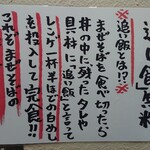 追い飯 無料
※追い飯とは!?※
まぜそばを食べ切ったら
丼の中に残ったタレや
具材に「追い飯」と言って
レンゲ一杯半ほどの白ご飯
を投入して完食!!
これぞまぜそばの